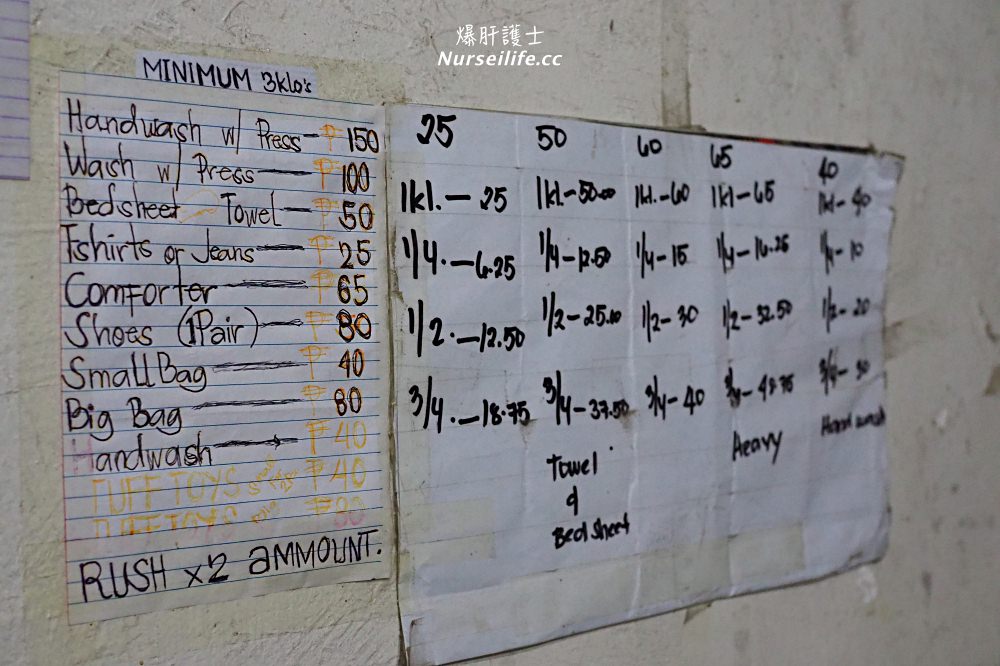 爆肝護士
Nurseilife.cc
MINIMUM 3klo's
Handwash w/ Press — ₱ 150
Wash w/ Press — ₱ 100
Bedsheet Towel — ₱ 50
Tshirts or Jeans — ₱ 25
Comforter — ₱ 65
Shoes (1Pair) — ₱ 80
Small Bag — ₱ 40
Big Bag — 80
Handwash — ₱ 40
TUFF TOYS ₱ 40
TUFF TOYS
RUSH x2 AMMOUNT.
25
1kl. — 25
1/4. — 6.25
1/2. — 12.50
3/4. — 18.75
50
1kl - 50.00
1/4 - 12.50
1/2 - 25.00
3/4 - 37.50
Towel
&
Bed sheet
60
1kl. - 60
1/4 - 15
1/2 - 30
3/4 - 40
65
1kl - 65
1/4 - 16.25
1/2 - 32.50
3/4 - 48.75
Heavy
40
1kl - 40
1/4 - 10
1/2 - 20
3/4 - 30
Hand wash